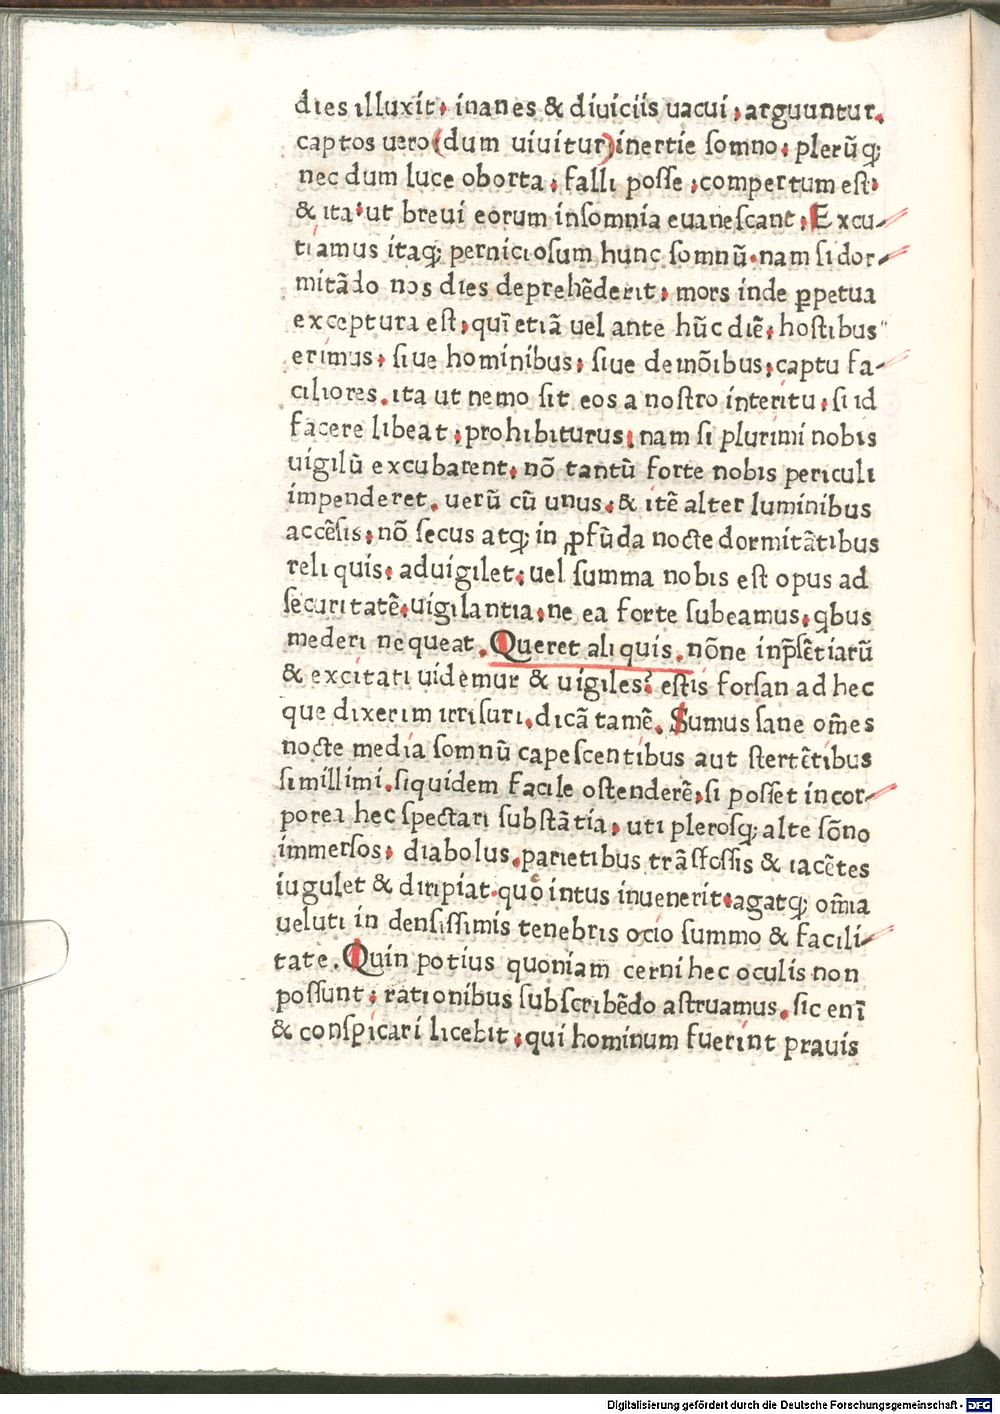 dies illuxit, inanes & diuiciis uacui, arguuntur.
captos uero (dum uiuitur) inertie somno, plerũq;
nec dum luce oborta, falli posse, compertum est,
& ita, ut breui eorum insomnia euanescant, Excu-
tiamus itaq; perniciosum hunc somnũ. nam si dor-
mitãdo nos dies deprehẽderit, mors inde ꝑpetua
exceptura est, quĩ etiã uel ante hũc diẽ, hostibus
erimus, siue hominibus, siue demõibus, captu fa-
ciliores. ita ut nemo sit eos a nostro interitu, si id
facere libeat, prohibiturus, nam si plurimi nobis
uigilũ excubarent, nõ tantũ forte nobis periculi
impenderet. uerũ cũ unus, & itẽ alter luminibus
accẽsis, nõ secus atq; in ꝓfũda nocte dormitãtibus
reliquis, aduigilet, uel summa nobis est opus ad
securitatẽ, uigilantia, ne ea forte subeamus, qbus
mederi nequeat. Queret aliquis. nõne inp̃sẽtiarũ
& excitati uidemur & uigiles? estis forsan ad hec
que dixerim irrisuri. dicã tamẽ. Sumus sane om̃es
nocte media somnũ capescentibus aut stertẽtibus
simillimi. siquidem facile ostenderẽ, si posset incor-
porea hec spectari substãtia, uti plerosq; alte sõno
immersos, diabolus, parietibus trãsfossis & iacẽtes
iugulet & diripiat. quõ intus inuenerit, agatq; om̃ia
ueluti in densissimis tenebris ocio summo & facili-
tate. Quin potius quoniam cerni hec oculis non
possunt, rationibus subscribẽdo astruamus. sic enĩ
& conspicari licebit, qui hominum fuerint prauis
Digitalisierung gefördert durch die Deutsche Forschungsgemeinschaft - DFG